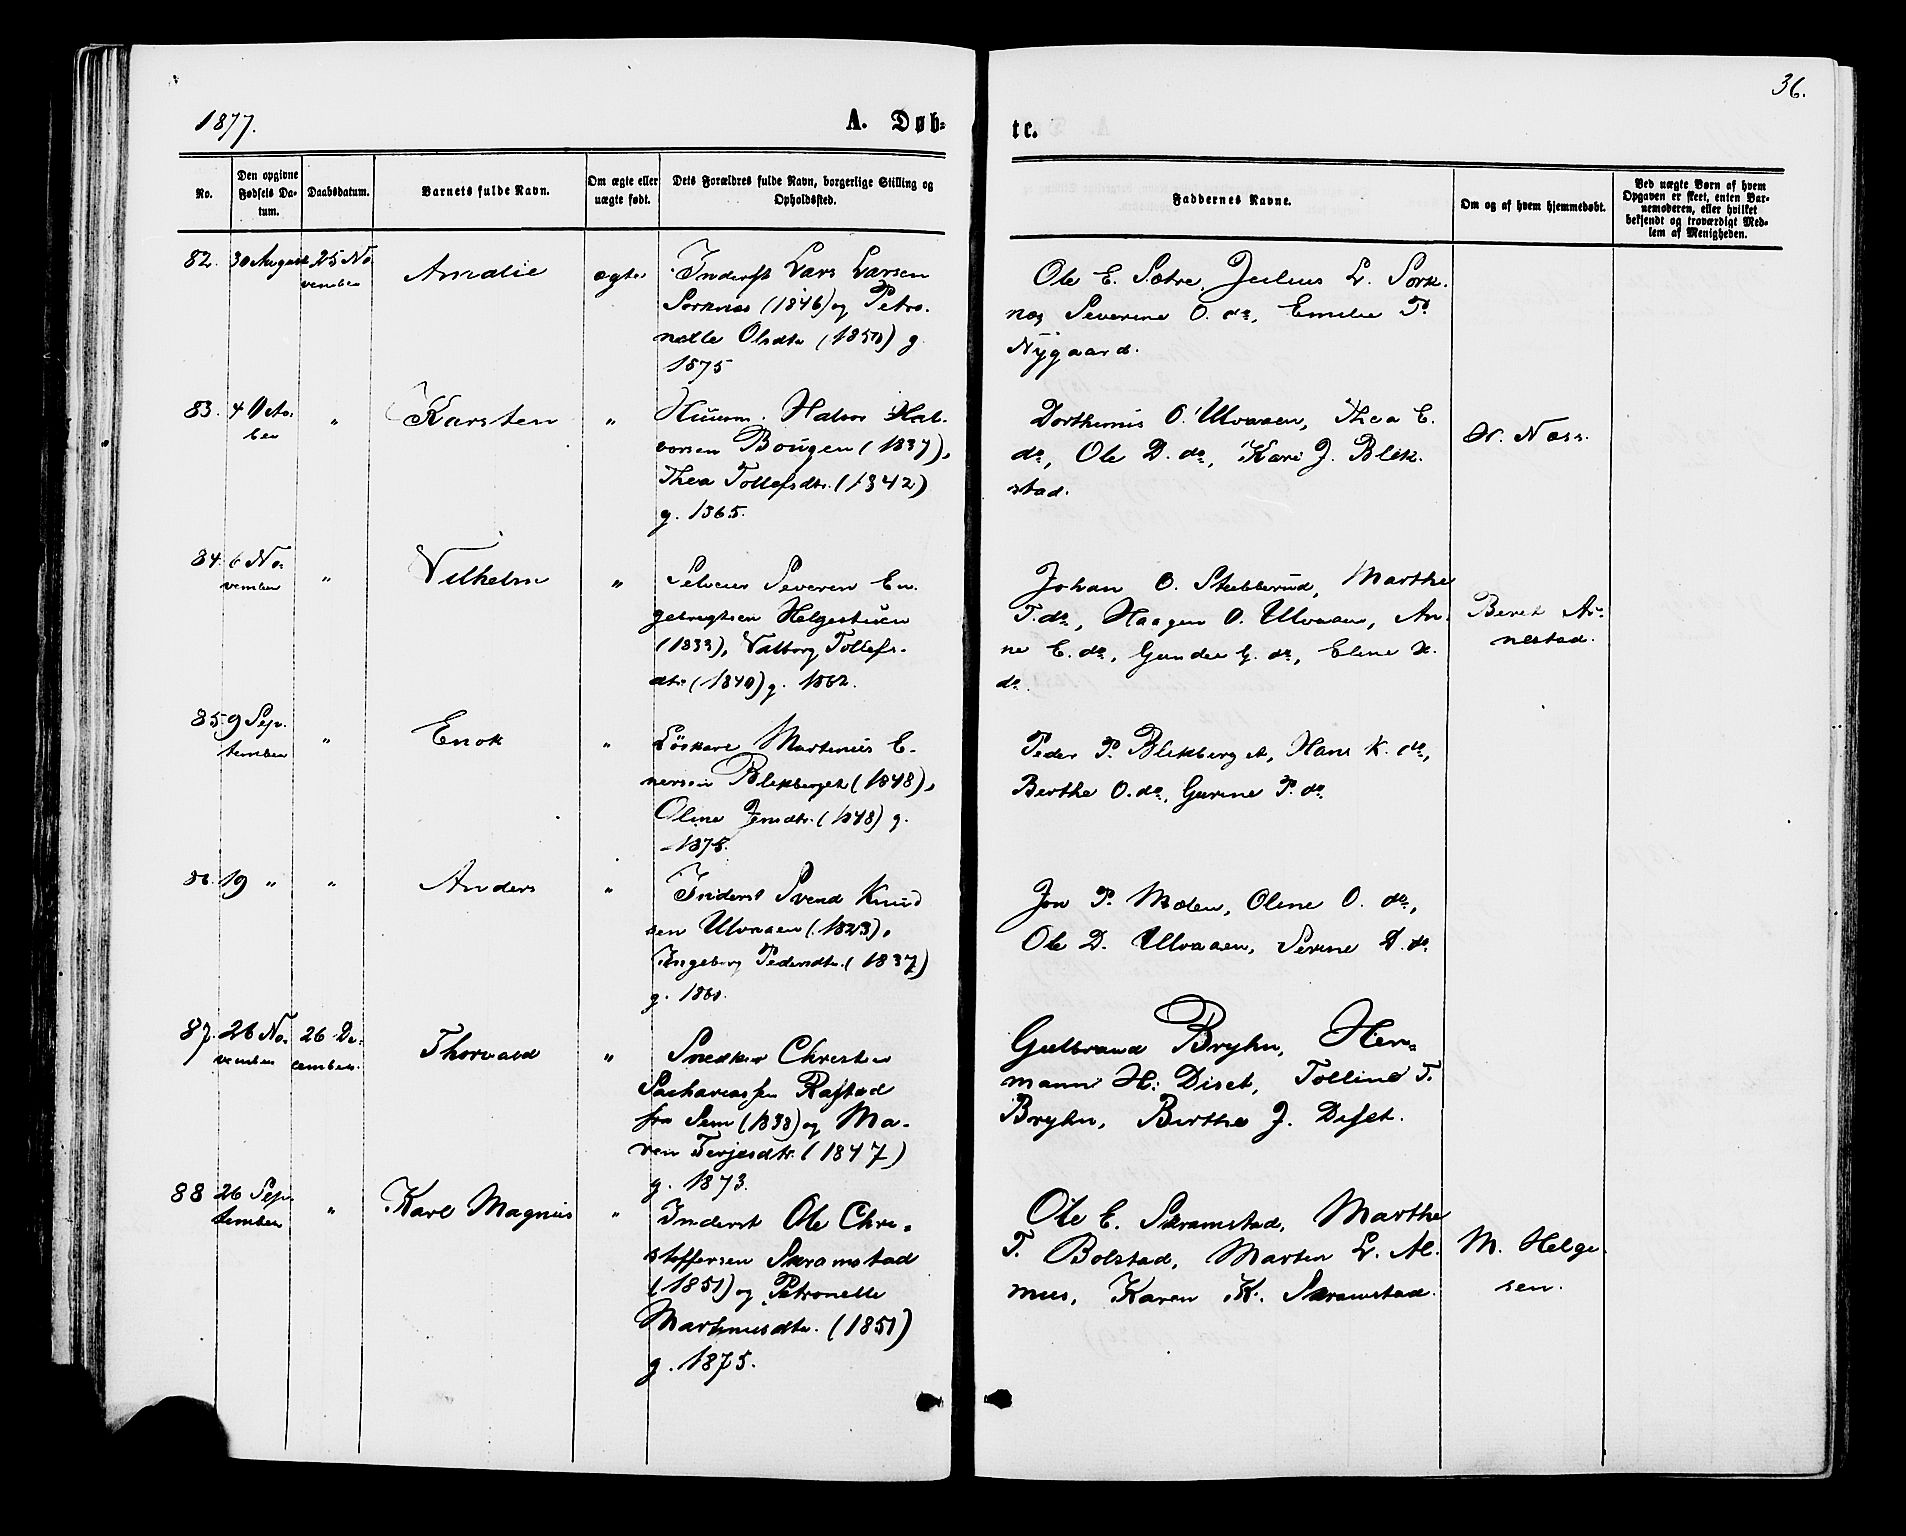 36.
1877.
A. Døb-
te.
No.
Den opgivne Fødsels Da-
tum.
Daabsdatum.
Barnets fulde Navn.
Om ægte eller
uægte født.
Dets Forældres fulde Navn, borgerlige Stilling og
Opholdssted.
Faddernes Navne.
Om og af hvem hjemmedøbt.
Ved uægte Børn af hvem
Opgaven er skeet, enten Bar-
nemoderen, eller hvilket
bekjendt og troværdigt Med-
lem af Menigheden.
82. 30 August 25 No-
vember
Amalie
ægte
Inderst Lars Larsen
Sorknæs (1846) og Petro-
nelle Olsdtr (1850) g.
1875
Ole E. Sætre, Julius L. Sork-
næs Severine O. do, Emilie P.
Nygaard.
83. 4 Octo-
ber
"
Karsten
"
Huusm. Halvor Hal-
vorsen Bougen (1837),
Thea Tollefsdtr. (1842)
g. 1865.
Dorthenus O. Ulvaaen, Thea E.
do, Ole D. do, Kari J. Blek-
stad.
N. Næss.
84. 6 No-
vember
"
Vilhelm
"
Selveier Severin En-
gebregtsen Helgestuen
(1833), Valborg Tollefs-
dtr (1840) g. 1862.
Johan O. Stebberud, Marthe
T. do, Haagen O. Ulvaaen, An-
ne E. do, Gunder G. do, Eline H.
do.
Beret Ar-
nestad.
85. 9 Sep-
tember
"
Enok
"
Løskarl Martinus E-
nersen Blekberget (1848),
Oline Jensdtr. (1848) g.
1875.
Peder P. Blekberget, Hans K. do,
Berthe O. do, Gurine P. do
86. 19 "
"
Anders
"
Inderst Svend Knud-
sen Ulvaaen (1823),
Ingeborg Pedersdtr. (1837)
g. 1860.
Jon P. Moen, Oline O. do,
Ole D. Ulvaaen, Serine D. do
87. 26 No-
vember
26 De-
cember.
Thorvald
"
Snedker Christen
Sachariassen Rafstad
fra Sem (1838) og Ma-
ren Terjesdtr. (1847)
g. 1873.
Gulbrand Bryhn, Her-
mann H. Diset, Tolline T.
Bryhn, Berthe J. Diset.
88 26 Sep-
tember
"
Karl Magnus
"
Inderst Ole Chri-
stoffersen Skramstad
(1851) og Petronelle
Martinusdtr. (1851)
g. 1875.
Ole E. Skramstad, Marthe
T. Bolstad, Martin L. Al-
mus, Karen K. Skramstad.
M. Helge-
sen.